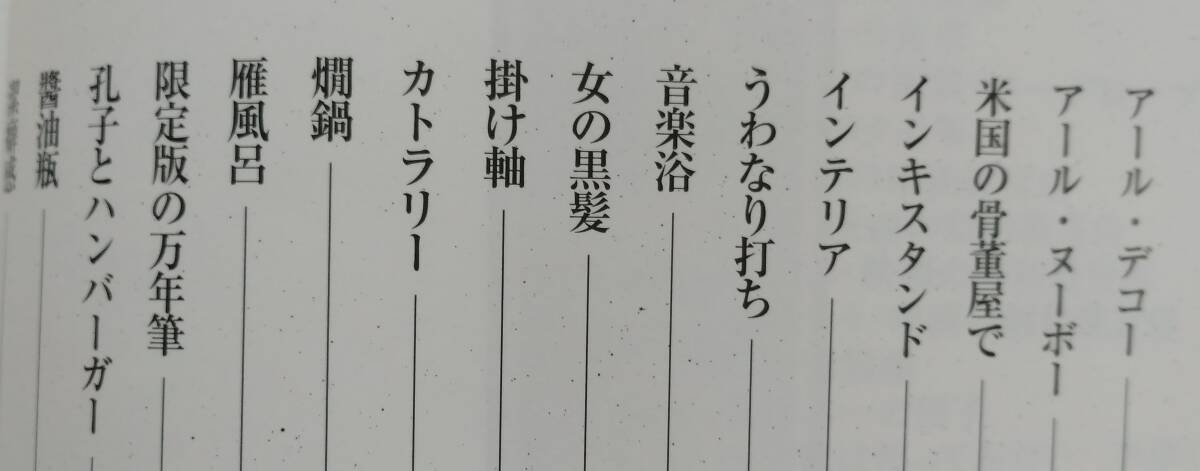 アール・デコー
アール・ヌーボー
米国の骨董屋で
インキスタンド
インテリア
うわなり打ち
音楽浴
女の黒髪
掛け軸
カトラリー
燗鍋
雁風呂
限定版の万年筆
孔子とハンバーガー
醬油瓶